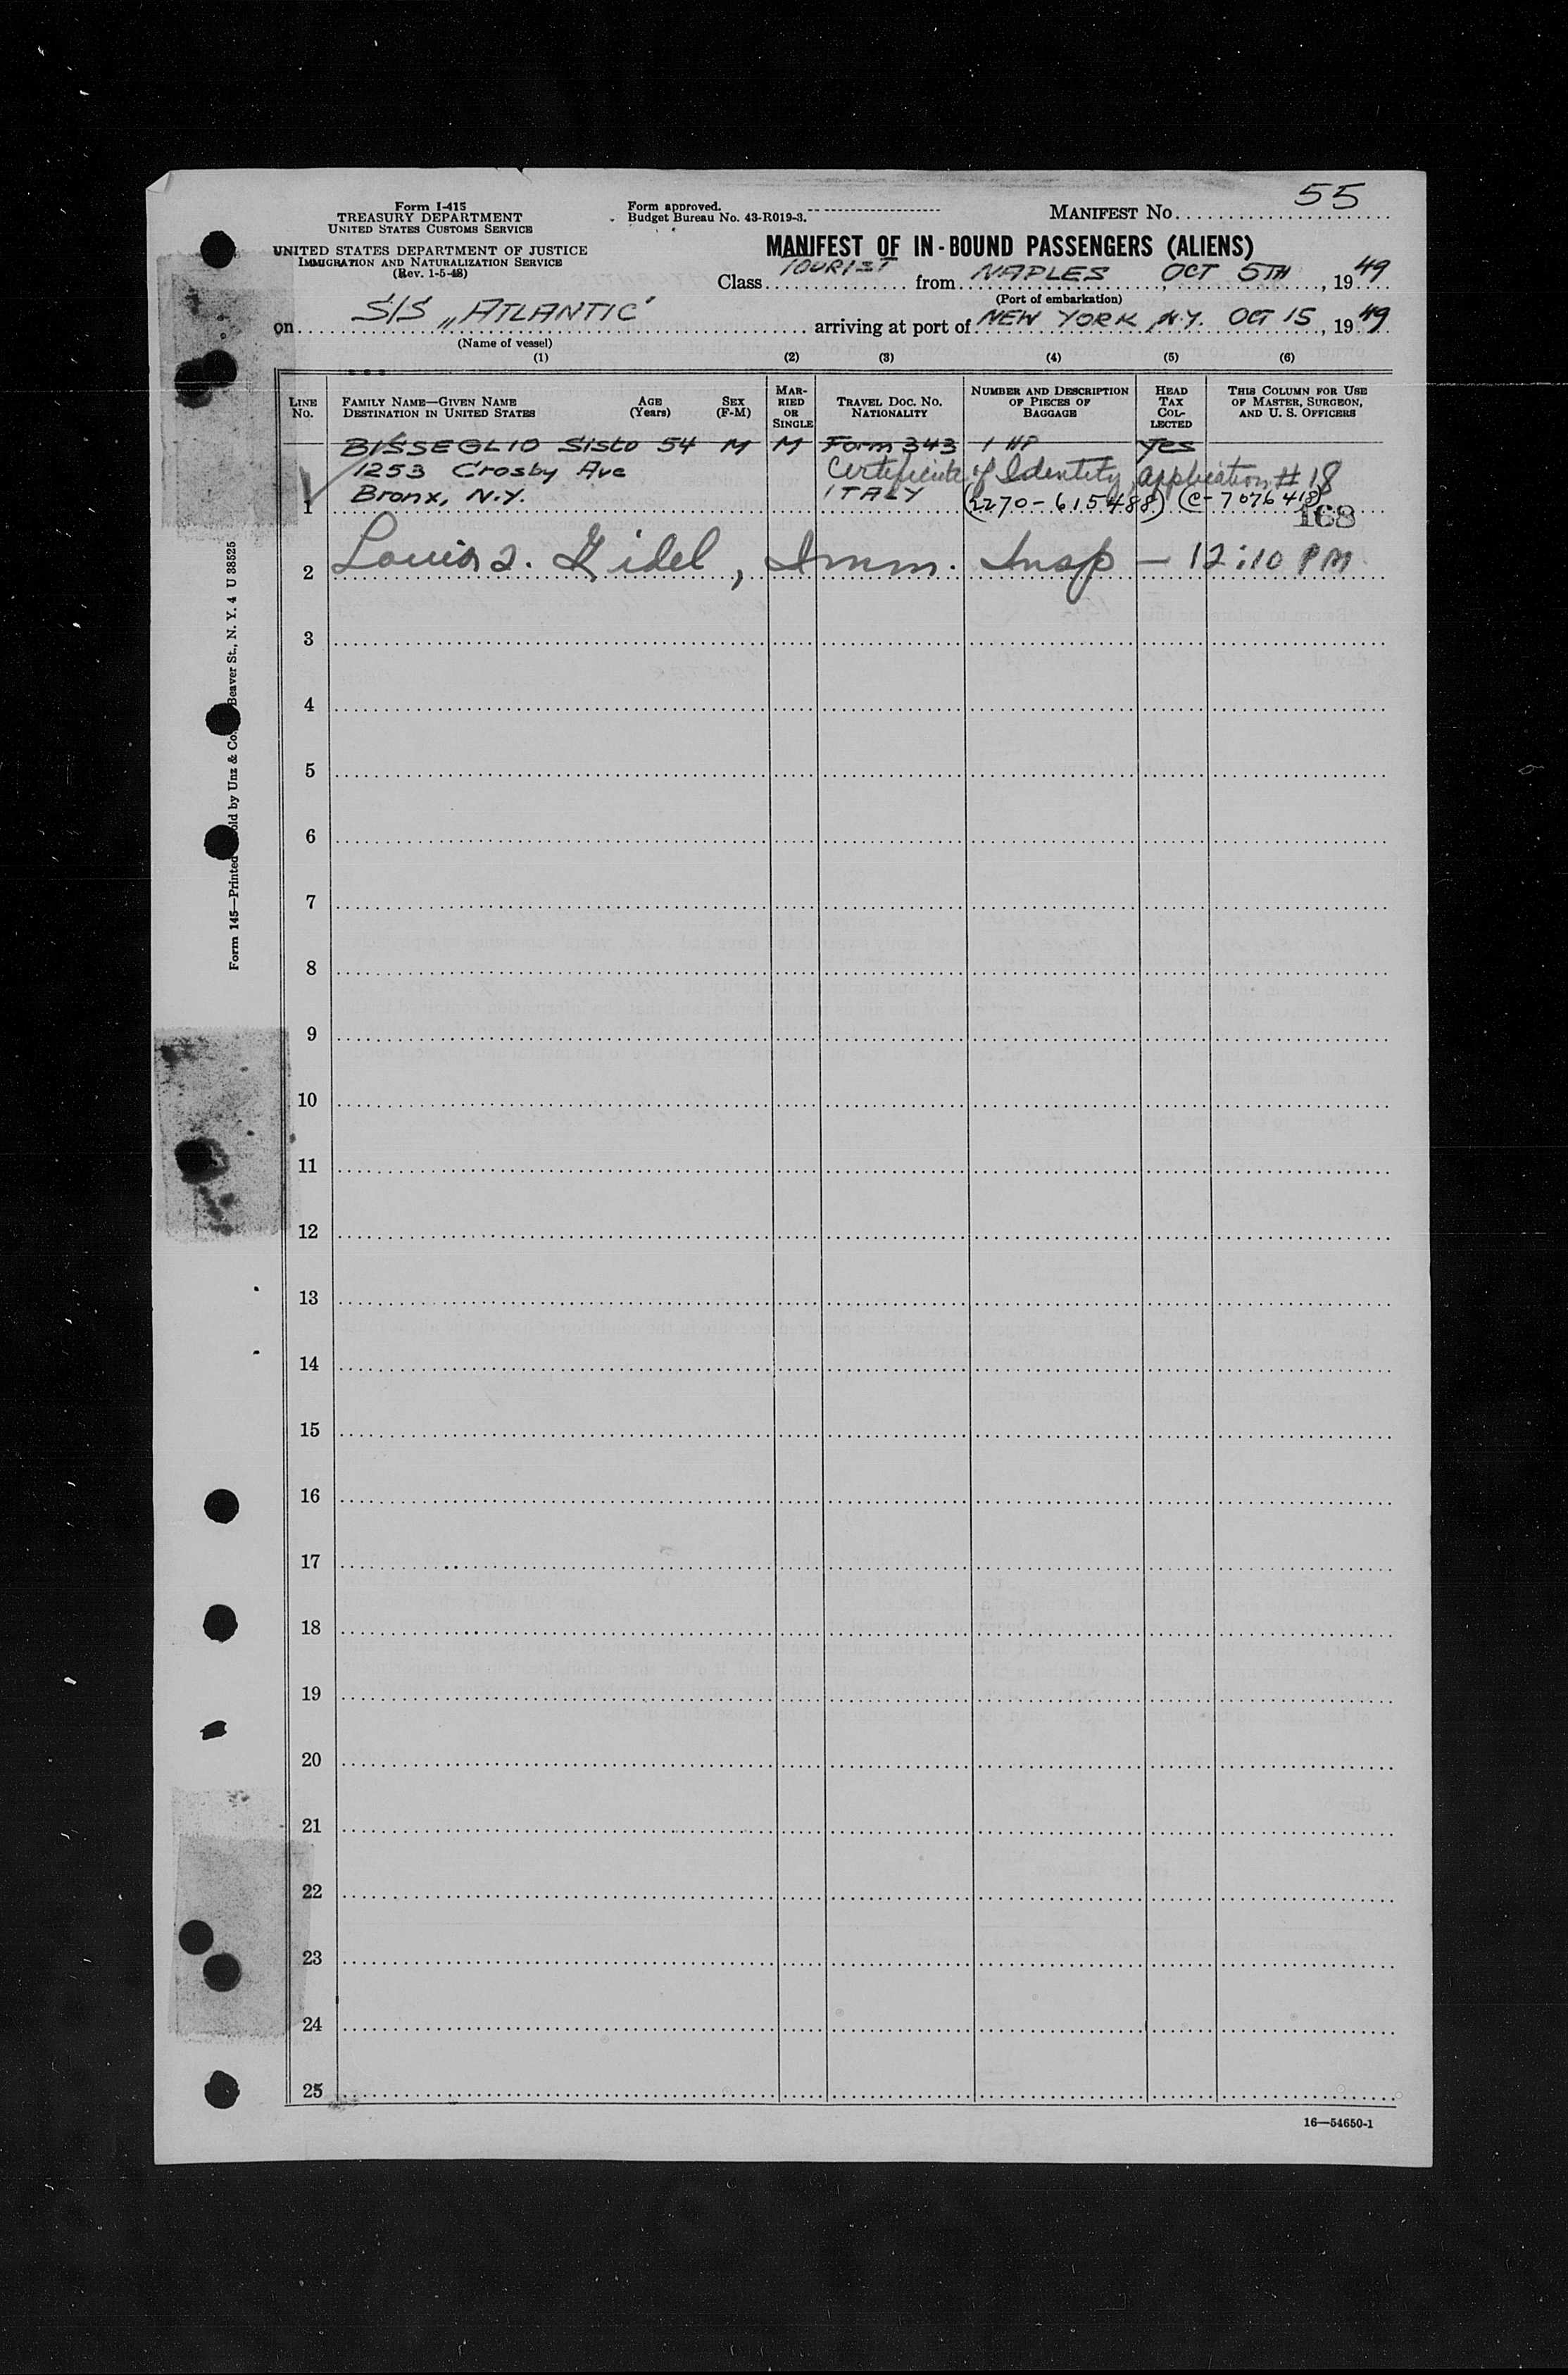 55
Form I-415
TREASURY DEPARTMENT
UNITED STATES CUSTOMS SERVICE
Form approved.
Budget Bureau No. 43-R019-3.
MANIFEST NO.
UNITED STATES DEPARTMENT OF JUSTICE
IMMIGRATION AND NATURALIZATION SERVICE
(Rev. 1-5-48)
MANIFEST OF IN-BOUND PASSENGERS (ALIENS)
Class TOURIST from NAPLES, OCT 5TH, 1949
(Port of embarkation)
on S/S „ATLANTIC" arriving at port of NEW YORK, N.Y. OCT 15, 1949
(Name of vessel)
(1) (2) (3) (4) (5) (6)
LINE NO. FAMILY NAME—GIVEN NAME DESTINATION IN UNITED STATES AGE (Years) SEX (F-M) MARRIED OR SINGLE TRAVEL DOC. NO. NATIONALITY NUMBER AND DESCRIPTION OF PIECES OF BAGGAGE HEAD TAX COLLECTED THIS COLUMN FOR USE OF MASTER, SURGEON, AND U. S. OFFICERS
BISSEGLIO Sisto 54 M M Form 343 1 HP Yes
1253 Crosby Ave Certificate of Identity, application # 18
1 Bronx, N.Y. ITALY (2270-615488) (C-7076418)
168
2 Louis Gidel, Imm. Insp — 12:10 PM
3
4
5
6
7
8
9
10
11
12
13
14
15
16
17
18
19
20
21
22
23
24
25
16—54650-1
Form 145—Printed old by Unz & Co. Beaver St., N. Y. 4 U 38525